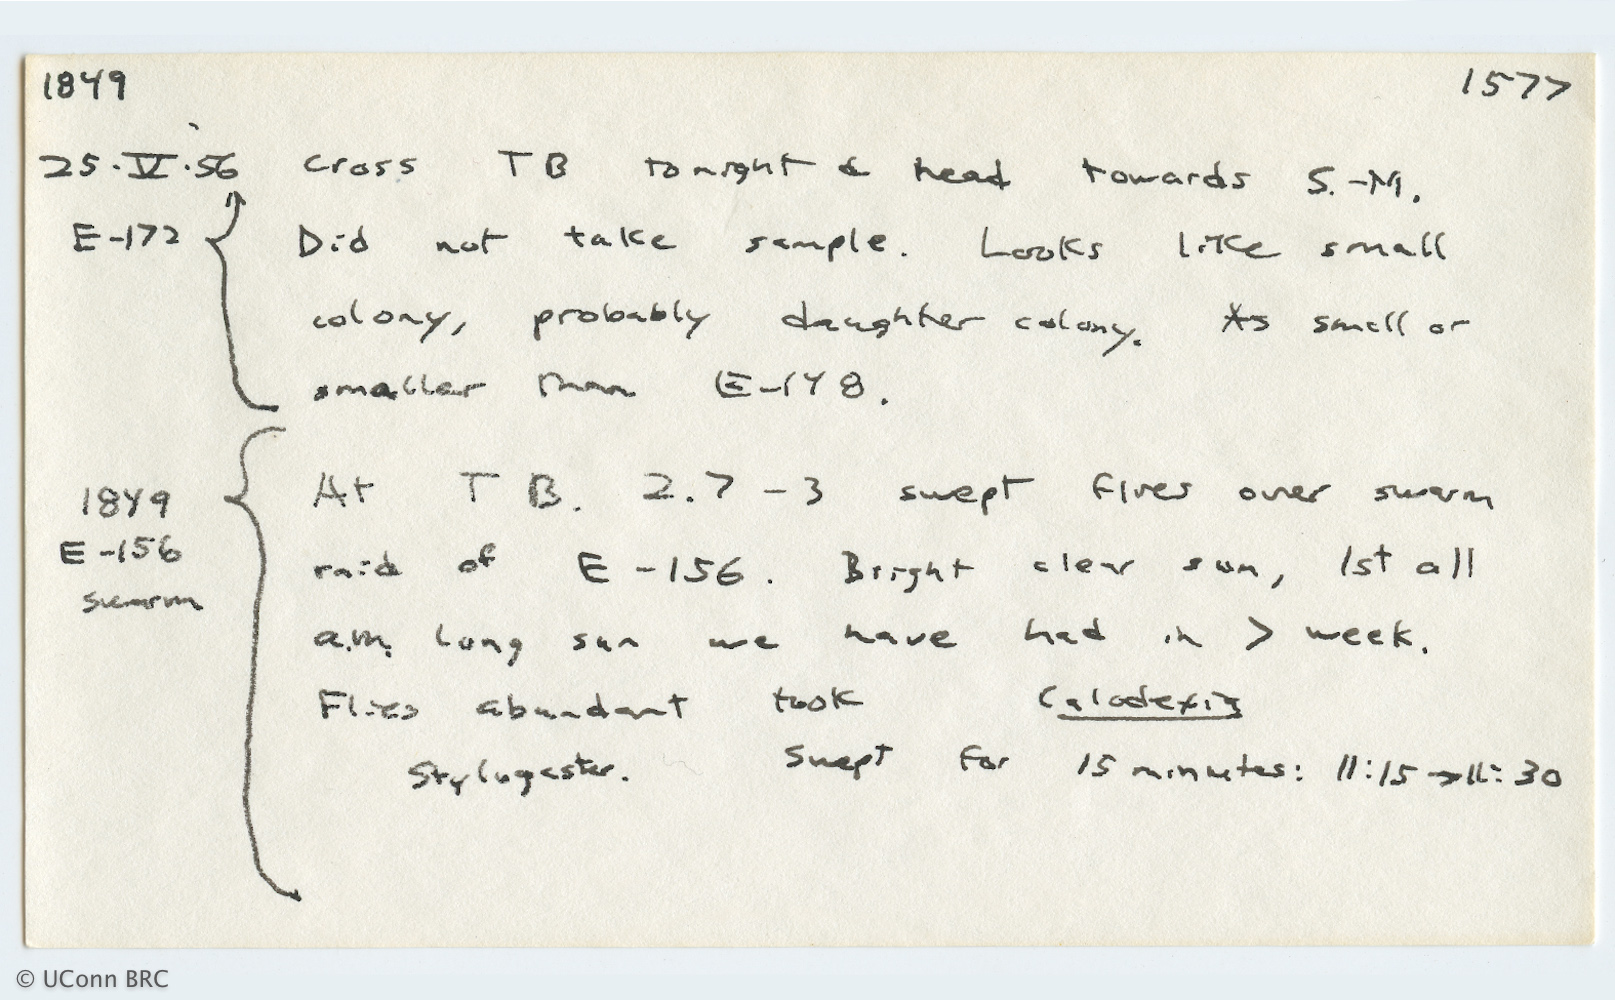 1849 1577
25·V·56 cross TB tonight & head towards S.-M.
E-172 Did not take sample. Looks like small
colony, probably daughter colony. As small or
smaller than E-148.
At TB. 2.7-3 swept flies over swarm
1849
E-156 raid of E-156. Bright clear sun, 1st all
swarm
a.m. long sun we have had in > week.
Flies abundant took Calodexia
Stylogaster. Swept for 15 minutes: 11:15→11:30
© UConn BRC